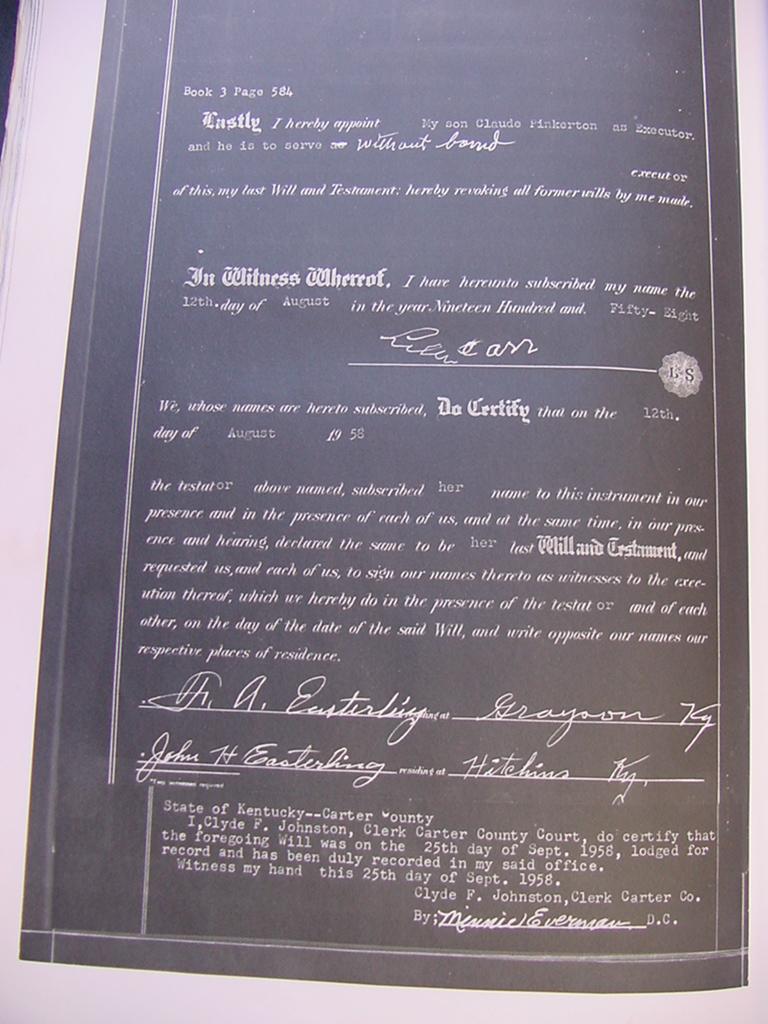 Book 3 Page 584
Lastly I hereby appoint My son Claude Pinkerton as Executor.
and he is to serve as without bond
executor
of this, my last Will and Testament: hereby revoking all former wills by me made.
In Witness Whereof, I have hereunto subscribed my name the
12th. day of August in the year Nineteen Hundred and. Fifty- Eight
Carr
L S
We, whose names are hereto subscribed, Do Certify that on the 12th.
day of August 19 58
the testator above named, subscribed her name to this instrument in our
presence and in the presence of each of us, and at the same time, in our pres-
ence and hearing, declared the same to be her last Will and Testament, and
requested us, and each of us, to sign our names thereto as witnesses to the exe-
ution thereof, which we hereby do in the presence of the testat or and of each
other, on the day of the date of the said Will, and write opposite our names our
respective places of residence.
A. Easterling residing at Grayson Ky
John H Easterling residing at Hitchins Ky.
*Two witnesses required
State of Kentucky--Carter County
I,Clyde F. Johnston, Clerk Carter County Court, do certify that
the foregoing Will was on the 25th day of Sept. 1958, lodged for
record and has been duly recorded in my said office.
Witness my hand this 25th day of Sept. 1958.
Clyde F. Johnston,Clerk Carter Co.
By; Minnie Everman D.C.